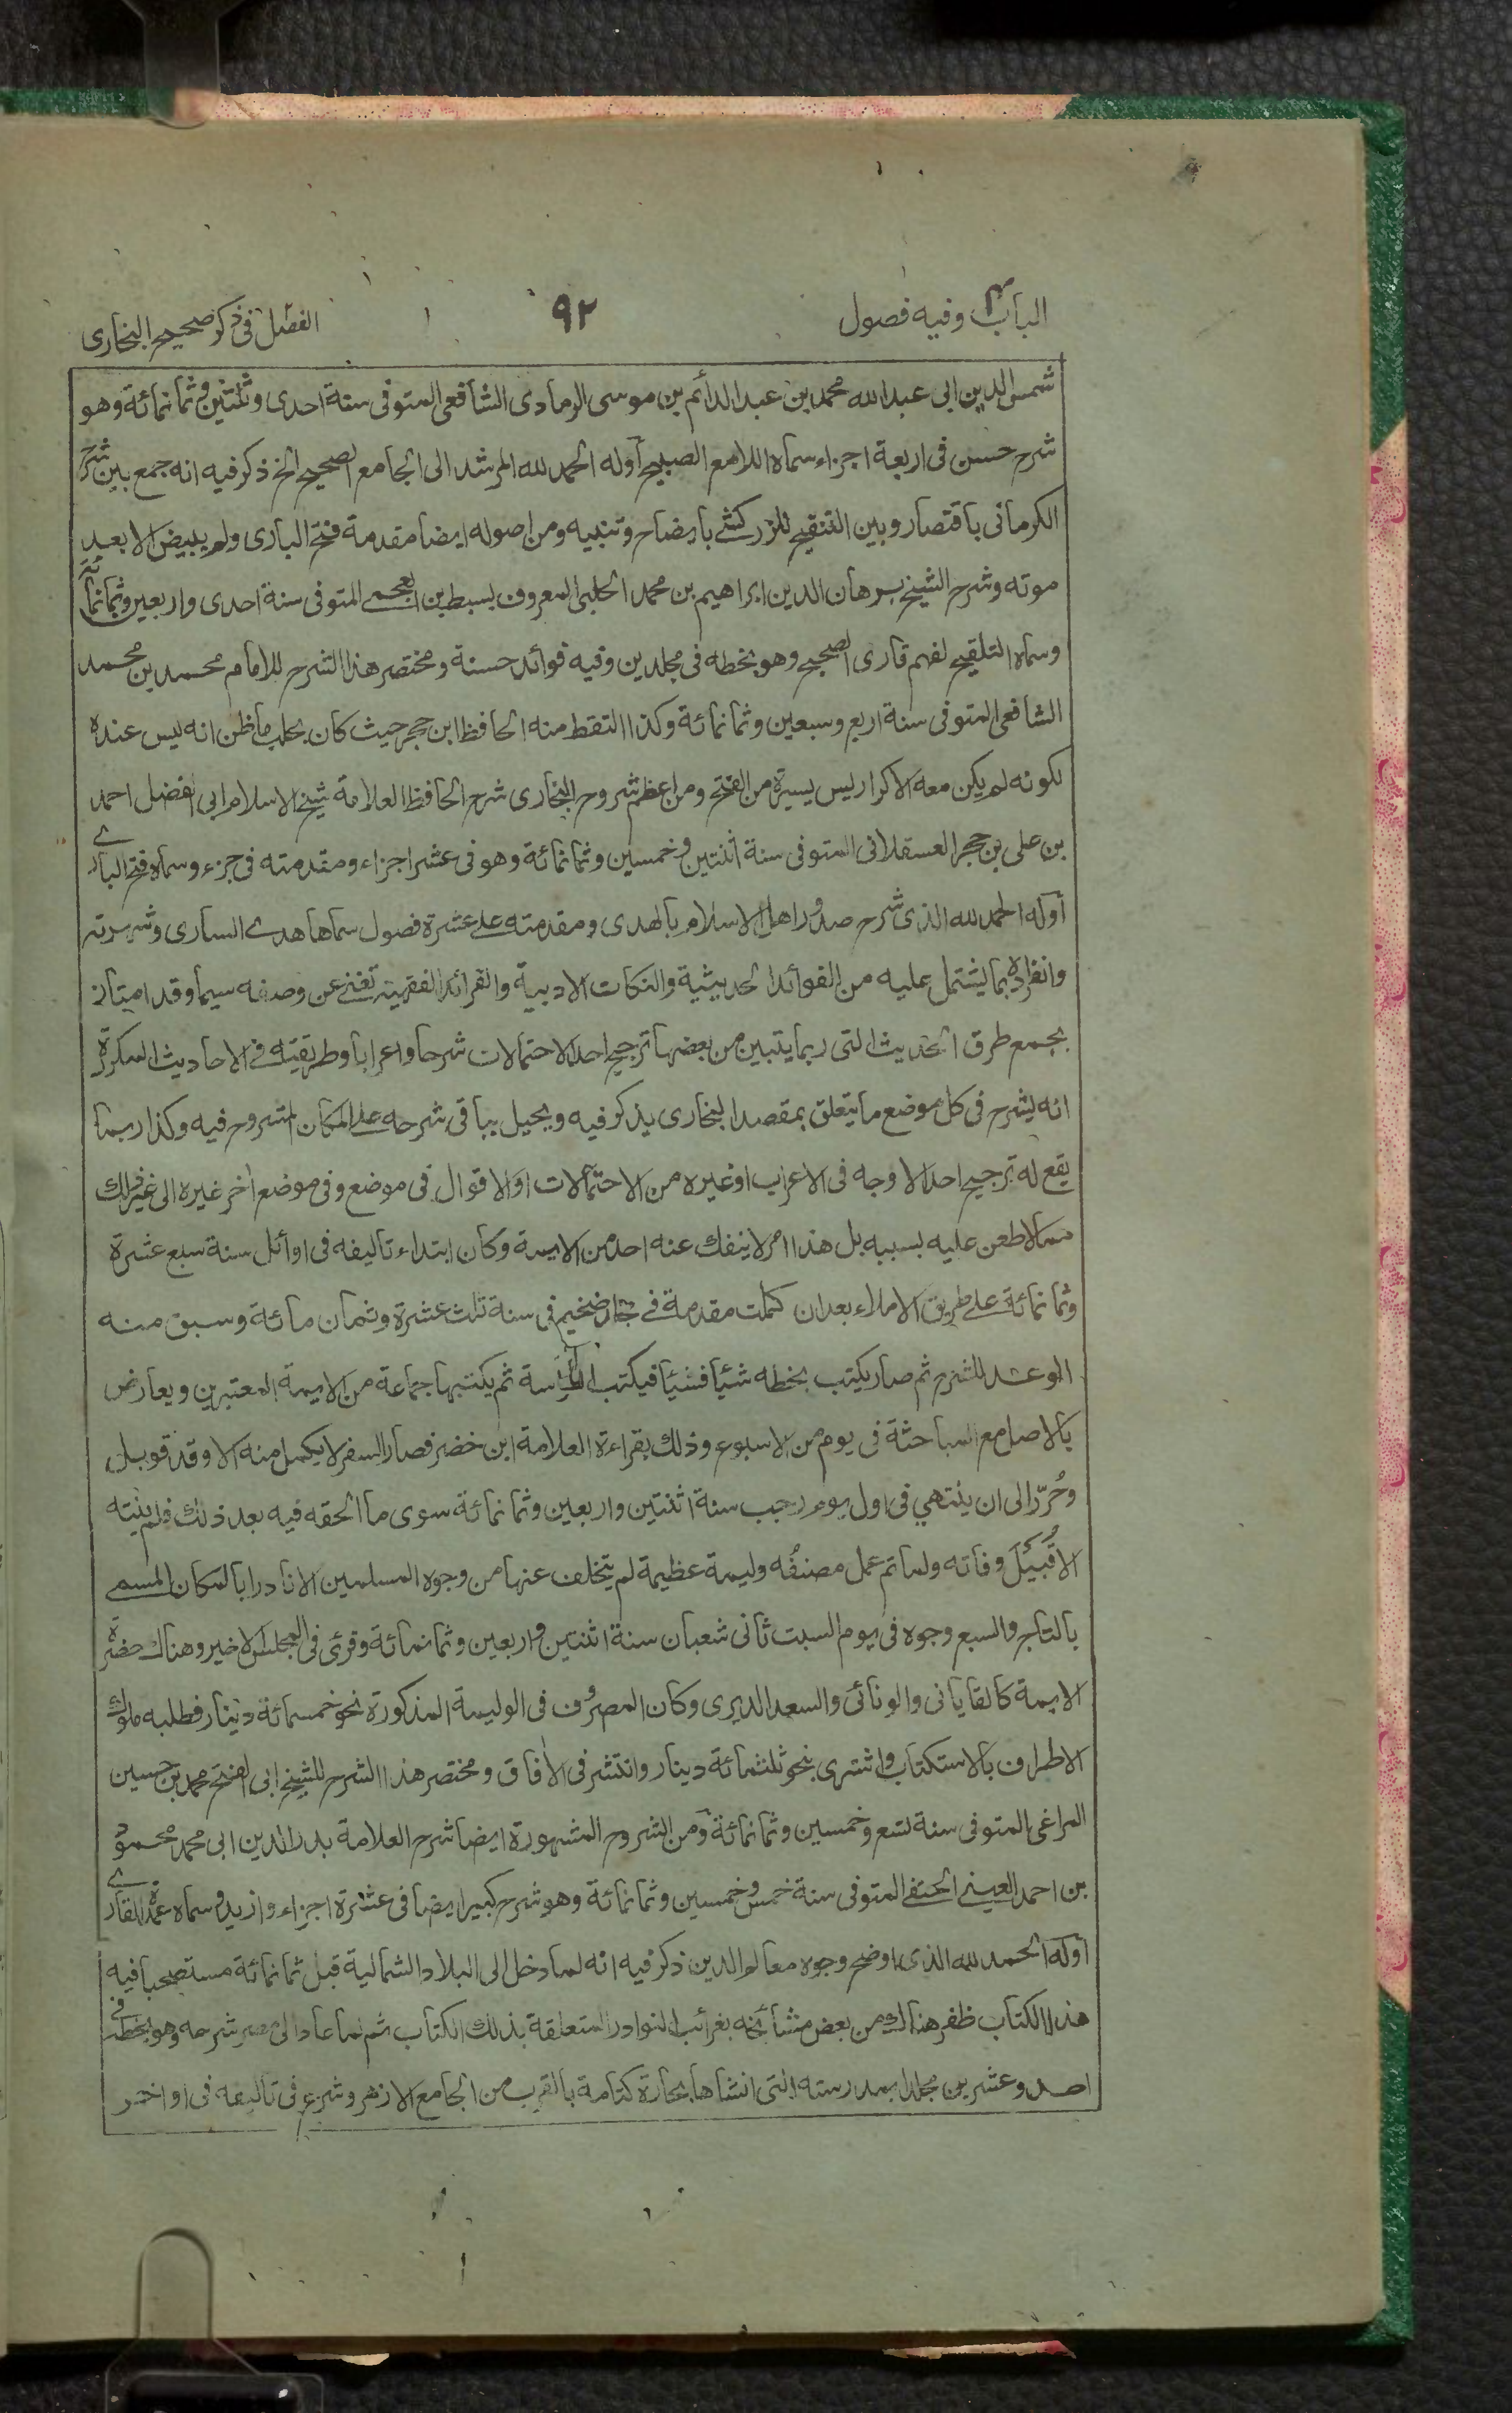 الباب وفيه فصول
٩٢
الفصل فى ذكر صحيح البخارى
شمس الدين ابى عبد الله محمد بن عبد الدائم بن موسى الرمادى الشافعى المتوفى سنة احدى وثلثين وثمانمائة وهو
شرح حسن فى اربعة اجزاء سماه اللامع الصبيح اوله الحمد لله المرشد الى الجامع الصحيح الخ ذكر فيه انه جمع بين شرح
الكرمانى باقتصار وبين التنقيح للزركشے بايضاح وتنبيه ومن اصوله ايضا مقدمة فتح البارى ولم يبيض الا بعد
موته وشرح الشيخ برهان الدين ابراهيم بن محمد الحلبى المعروف بسبط بن العجمے المتوفى سنة احدى واربعين وثمانمائة
وسماه التلقيح لفهم قارى الصحيح وهو بخطه فى مجلدين وفيه فوائد حسنة ومختصر هذا الشرح للامام محمد بن محمد
الشافعى المتوفى سنة اربع وسبعين وثمانمائة وكذا التقط منه الحافظ ابن حجر حيث كان بحلب ما ظن انه ليس عنده
لكونه لم يكن معه الا كراريس يسيرة من الفتح ومن اعظم شروح البخارى شرح الحافظ العلامة شيخ الاسلام ابى الفضل احمد
بن على بن حجر العسقلانى المتوفى سنة اثنتين وخمسين وثمانمائة وهو فى عشر اجزاء ومقدمته فى جزء وسماه فتح البارے
اوله الحمد لله الذى شرح صدور اهل الاسلام بالهدى ومقدمته على عشرة فصول سماها هدے السارى وشهرته
وانفراده بما يشتمل عليه من الفوائد الحديثية والنكات الادبية والفرائد الفقهية تغنے عن وصفه سيما وقد امتاز
بجمع طرق الحديث التى ربما يتبين من بعضها ترجيح احد الاحتمالات شرحا واعرابا وطريقته فے الاحاديث المكررة
انه يشرح فى كل موضع ما يتعلق بمقصد البخارى يذكر فيه ويحيل بباقى شرحه على المكان المشروح فيه وكذا ربما
يقع له ترجيح احد الاوجه فى الاعراب او غيره من الاحتمالات او الاقوال فى موضع وفى موضع اخر غيره الى غير ذلك
مما لا طعن عليه بسببه بل هذا امر لا ينفك عنه احد من الايمة وكان ابتداء تاليفه فى اوائل سنة سبع عشرة
وثمانمائة على طريق الاملاء بعد ان كملت مقدمة فے ضخيم فى سنة ثلث عشرة وثمان مائة وسبق منه
الوعد للشرح ثم صار يكتب بخطه شيئا فشيئا فيكتب الكراسة ثم يكتبها جماعة من الايمة المعتبرين ويعارض
بالاصل مع المباحثة فى يوم من الاسبوع وذلك بقراءة العلامة ابن خضر فصار السفر لا يكمل منه الا وقد قوبل
وحُرّر الى ان ينتهي فى اول يوم رجب سنة اثنتين واربعين وثمانمائة سوى ما الحقه فيه بعد ذلك فلم ينته
الا قُبَيْلَ وفاته ولما تم عمل مصنفُه وليمة عظيمة لم يتخلف عنها من وجوه المسلمين الا نادرا بالمكان المسمے
بالتاج والسبع وجوه فى يوم السبت ثانى شعبان سنة اثنتين واربعين وثمانمائة وقرئ فى المجلس الاخير وهناك حضرة
الايمة كالقاياتى والونائى والسعد الديرى وكان المصروف فى الوليمة المذكورة نحو خمسمائة دينار فطلبه ملوك
الاطراف بالاستكتاب واشترى بنحو ثلثمائة دينار وانتشر فى الافاق ومختصر هذا الشرح للشيخ ابى الفتح محمد بن حسين
المراغى المتوفى سنة تسع وخمسين وثمانمائة ومن الشروح المشهورة ايضا شرح العلامة بدر الدين ابى محمد محمود
بن احمد العينے الحنفے المتوفى سنة خمس وخمسين وثمانمائة وهو شرح كبير ايضا فى عشرة اجزاء وازيد وسماه عمدة القارے
اوله الحمد لله الذى اوضح وجوه معالم الدين ذكر فيه انه لما دخل الى البلاد الشمالية قبل ثمانمائة مستصحبا فيه
هذا الكتاب ظفر هنالك من بعض مشائخه بغرائب النوادر المتعلقة بذلك الكتاب ثم لما عاد الى مصر شرحه وهو بخطه فے
احد وعشرين مجلدا بمدرسته التى انشاها بحارة كتامة بالقرب من الجامع الازهر وشرع فى تاليفه فى اواخر